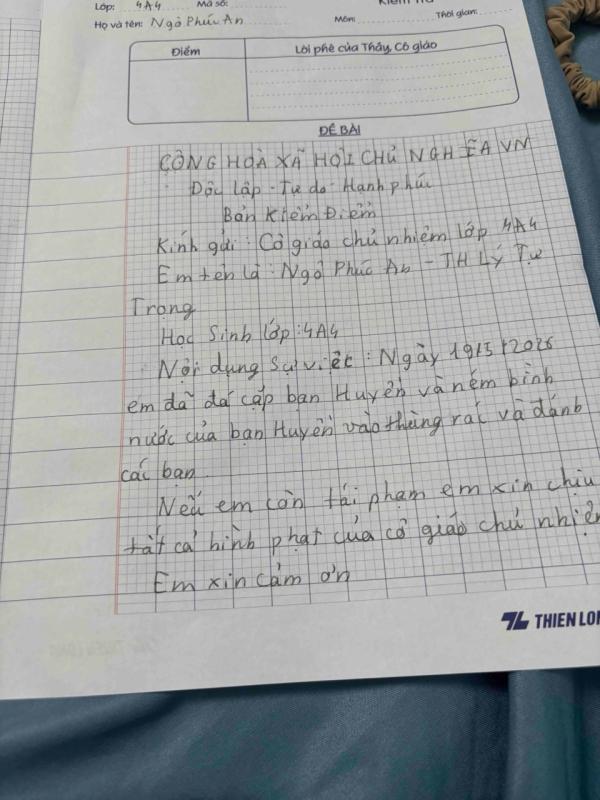 Lớp: 4A4 Mã số:
Họ và tên: Ngô Phúc An Môn: Thời gian:
Điểm Lời phê của Thầy, Cô giáo
ĐỀ BÀI
CỘNG HOÀ XÃ HỘI CHỦ NGHĨA VN
Độc lập - Tự do - Hạnh phúc
Bản Kiểm Điểm
Kính gửi: Cô giáo chủ nhiệm lớp 4A4
Em tên là: Ngô Phúc An - TH Lý Tự
Trọng
Học Sinh lớp: 4A4
Nội dung sự việc: Ngày 19/5/2026
em đã đá cặp bạn Huyền và ném bình
nước của bạn Huyền vào thùng rác và đánh
các bạn
Nếu em còn tái phạm em xin chịu
tất cả hình phạt của cô giáo chủ nhiệm
Em xin cảm ơn
THIEN LON